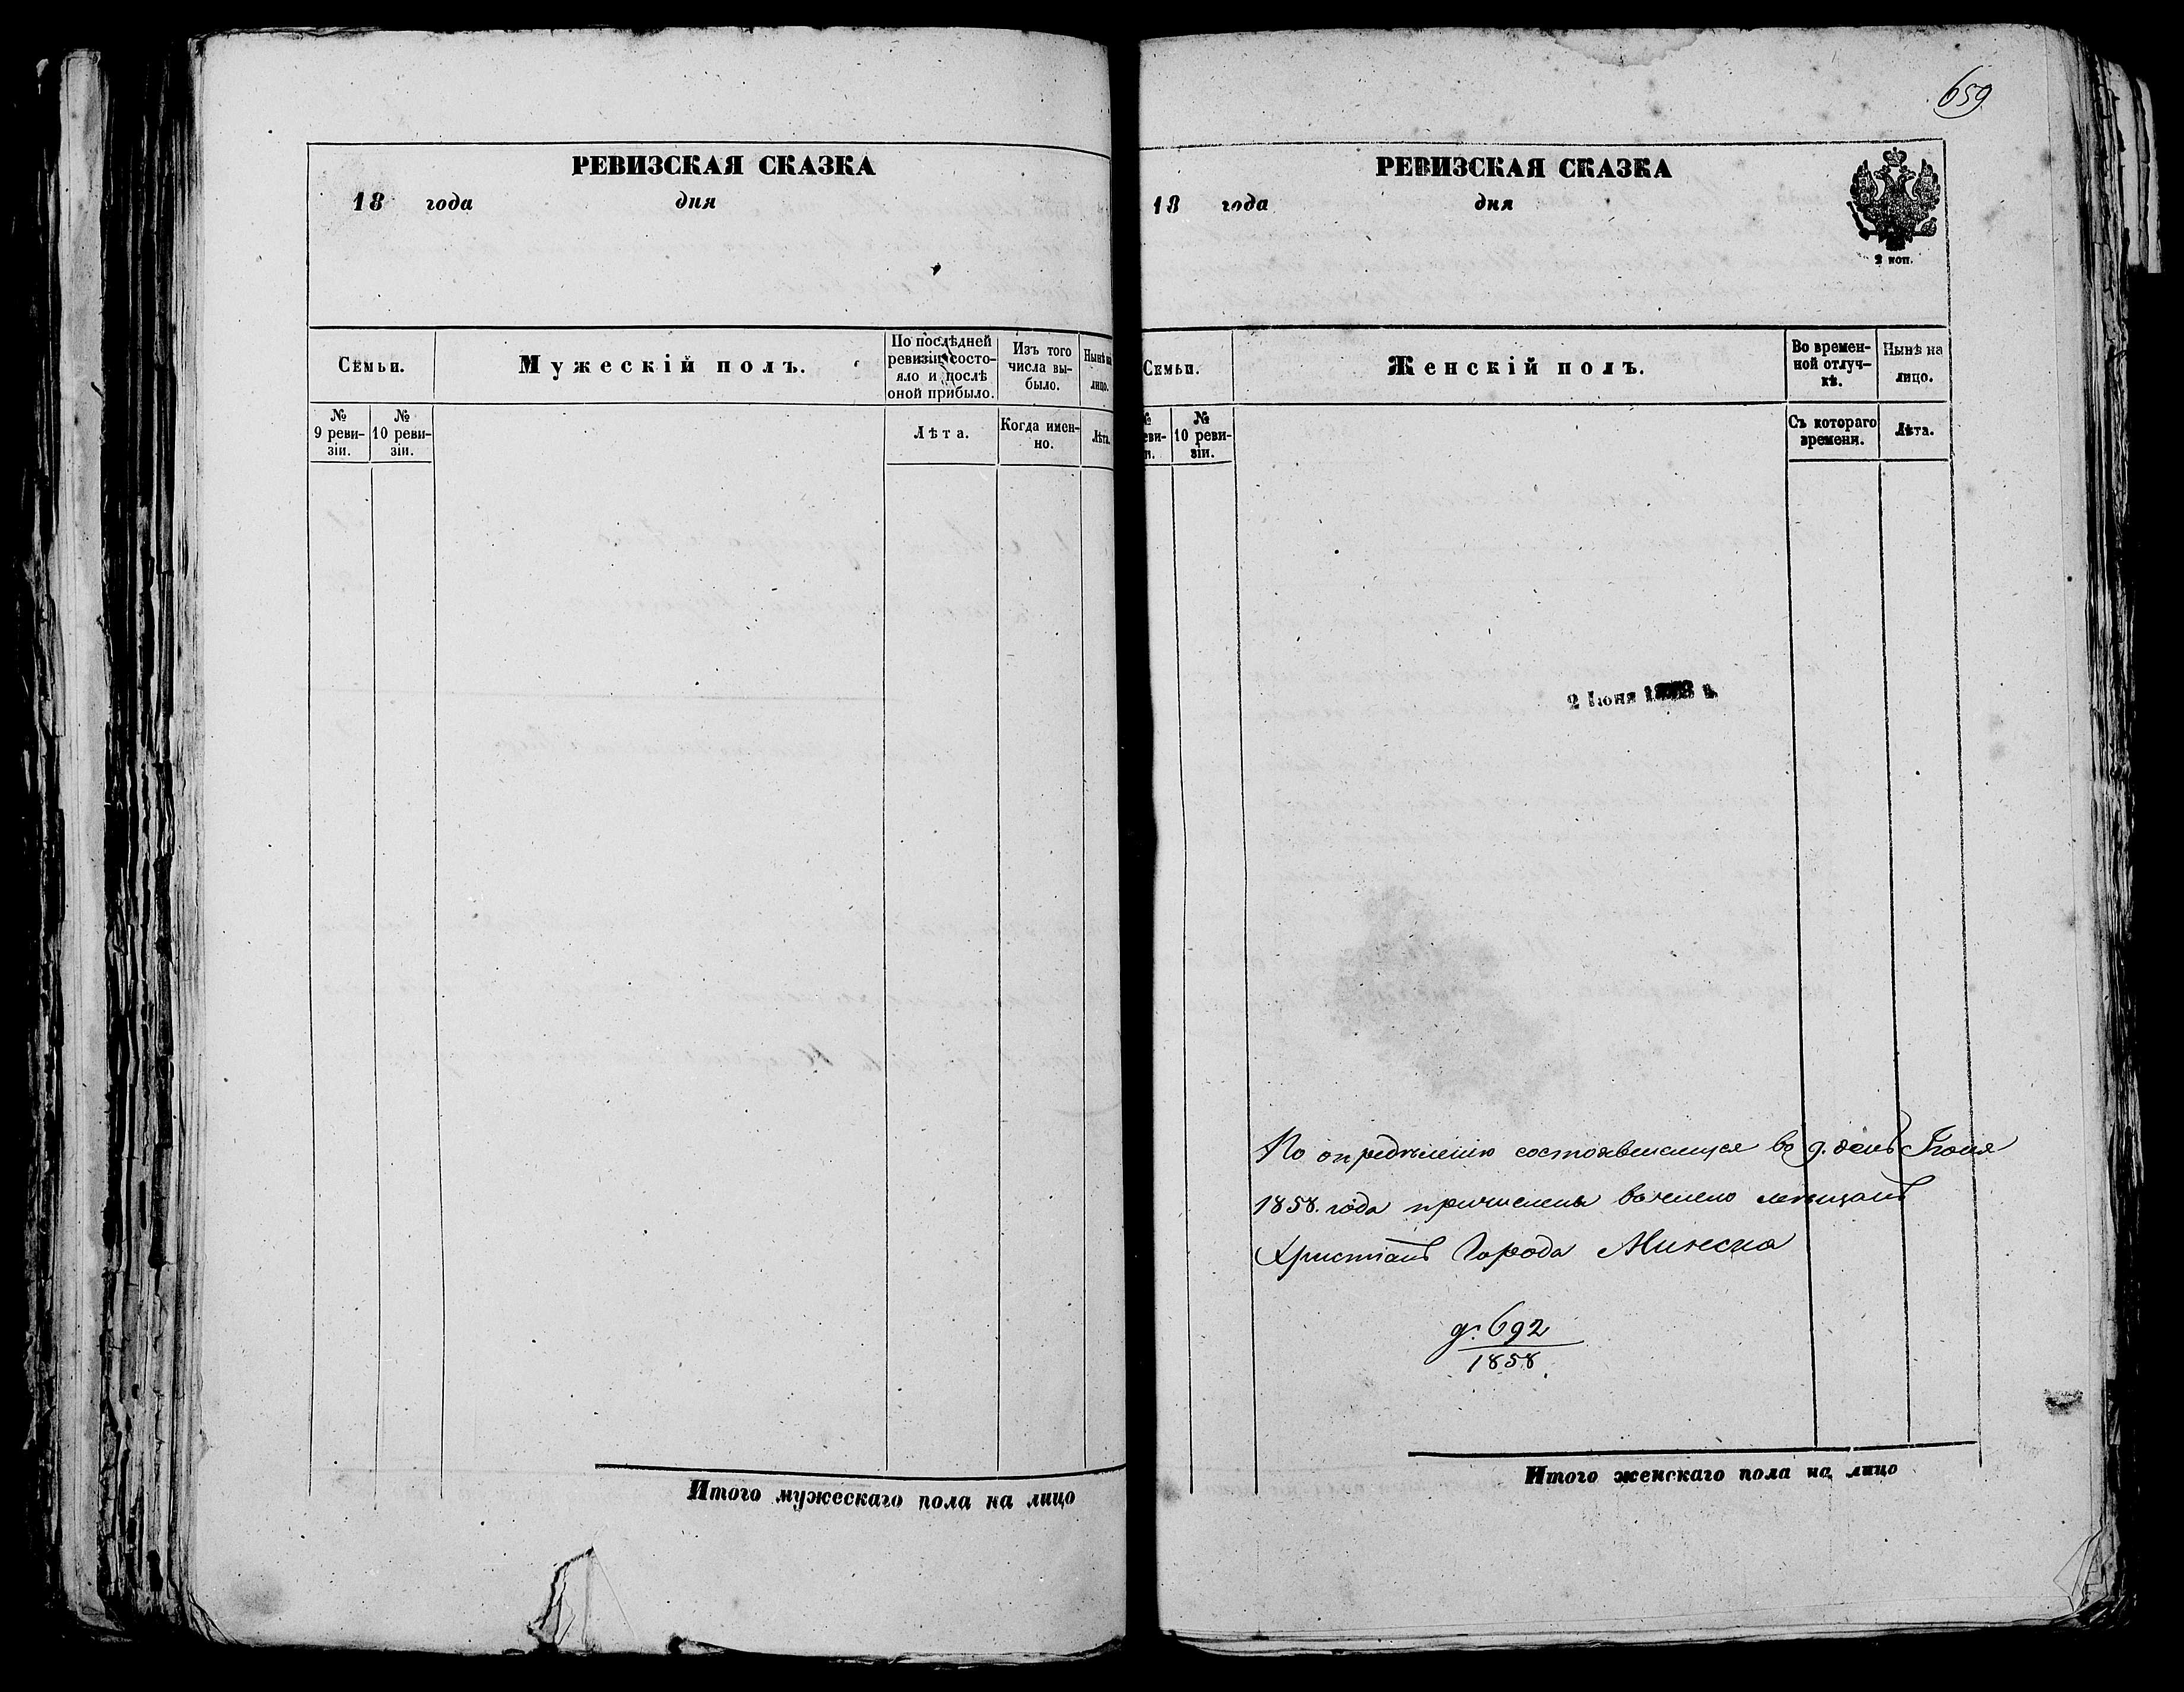 РЕВИЗСКАЯ СКАЗКА
18 года дня
Семьи.
Мужескій полъ.
По послѣдней ревизіи состояло и послѣ оной прибыло.
Изъ того числа выбыло.
Нынѣ на лицо.
№ 9 ревизіи.
№ 10 ревизіи.
Лѣта.
Когда именно.
Лѣта.
Итого мужескаго пола на лицо
659
РЕВИЗСКАЯ СКАЗКА
18 года дня
2 коп.
Семьи.
Женскій полъ.
Во временной отлучкѣ.
Нынѣ на лицо.
№ 10 ревизіи.
Съ котораго времени.
Лѣта.
2 Іюня
По опредѣленію состоявшемуся во 9. день Іюня
1858. года причислены въ число мѣщанъ
Христіанъ Города Минска
д. 692
1858.
Итого женскаго пола на лицо